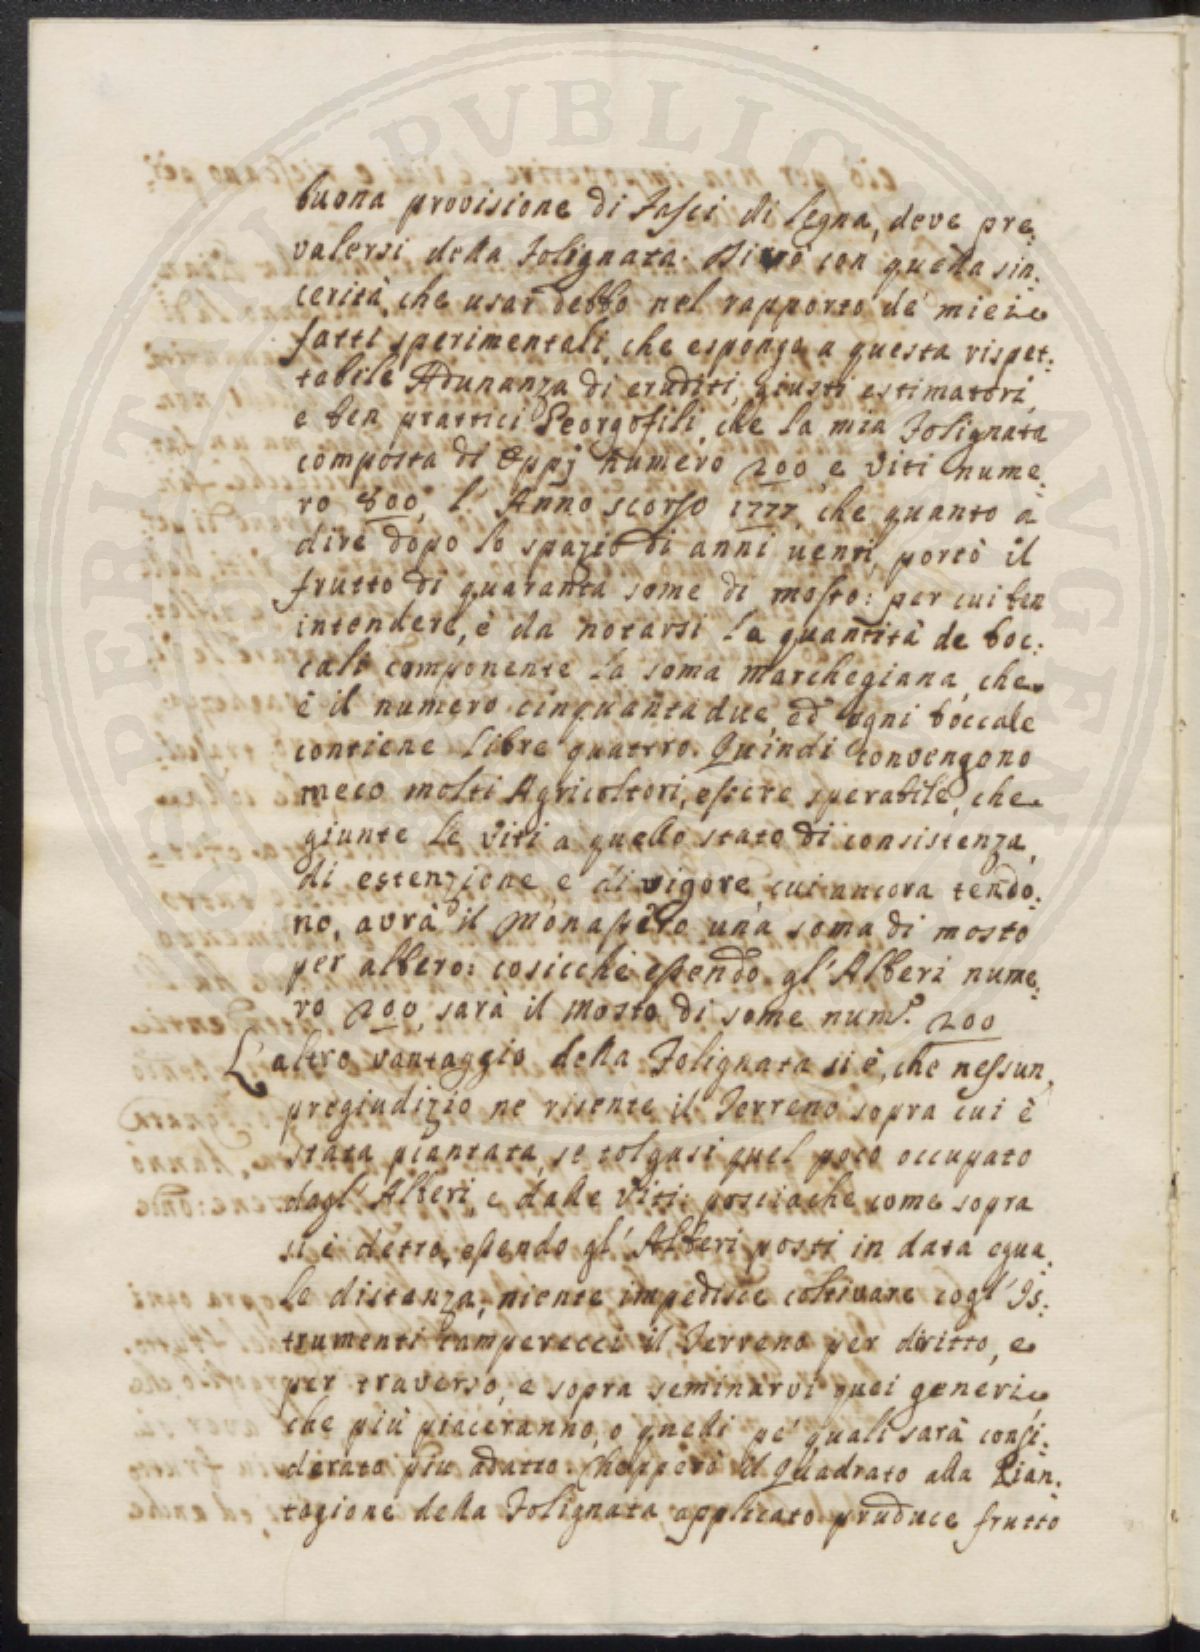 buona provisione di Fasci di legna, deve pre:
valersi della Folignata. Dirrò con quella sin:
cerità, che usar debbo nel rapporto de' miei
fatti sperimentali, che espongo a questa rispet:
tabile Adunanza di eruditi, giusti estimatori,
e ben prattici Georgofili, che la mia Folignata
composta di Oppj numero 200, e Viti nume:
ro 800, l' Anno scorso 1777, che quanto a
dire dopo lo spazio di anni venti, portò il
frutto di quaranta some di mosto: per cui ben
intendere, è da notarsi la quantità de boc:
cali componente la soma marchegiana, che
è il numero cinquantadue, ed ogni boccale
contiene libre quattro. Quindi convengono
meco molti Agricoltori, essere sperabile, che
giunte le Viti a quello stato di consistenza,
di estenzione, e di vigore, cui ancora tendo:
no, avrà il Monastero una soma di mosto
per albero: cosicchè essendo gl' Alberi nume:
ro 200, sarà il Mosto di some num.º 200
L'altro vantaggio della Folignata si è, che nessun
pregiudizio ne risente il Terreno sopra cui è
stata piantata, se tolgasi quel poco occupato
dagl' Alberi, e dalle Viti: posciache come sopra
si è detto, essendo gl' Alberi posti in data egua:
le distanza, niente impedisce coltivare cogl' Is:
trumenti camperecci il Terreno per diritto, e
per traverso, e sopra seminarvi quei generi,
che più piaceranno, o quelli pe' quali sarà consi:
derato più adatto. Cheppero il Quadrato alla Pian:
tagione della Folignata applicato produce frutto